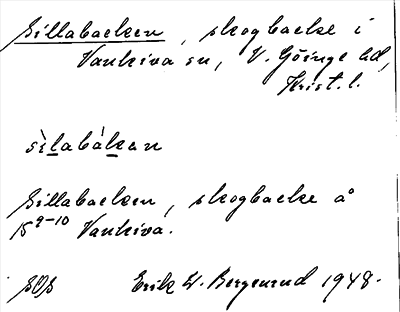 Sillabacken, skogbacke i
Vankiva sn, V. Göinge hd,
Krist. l.
sìlabákan
Sillabacken, skogbacke å
15⁹⁻¹⁰ Vankiva.
SOS Erik W. Bergenrud 1948.